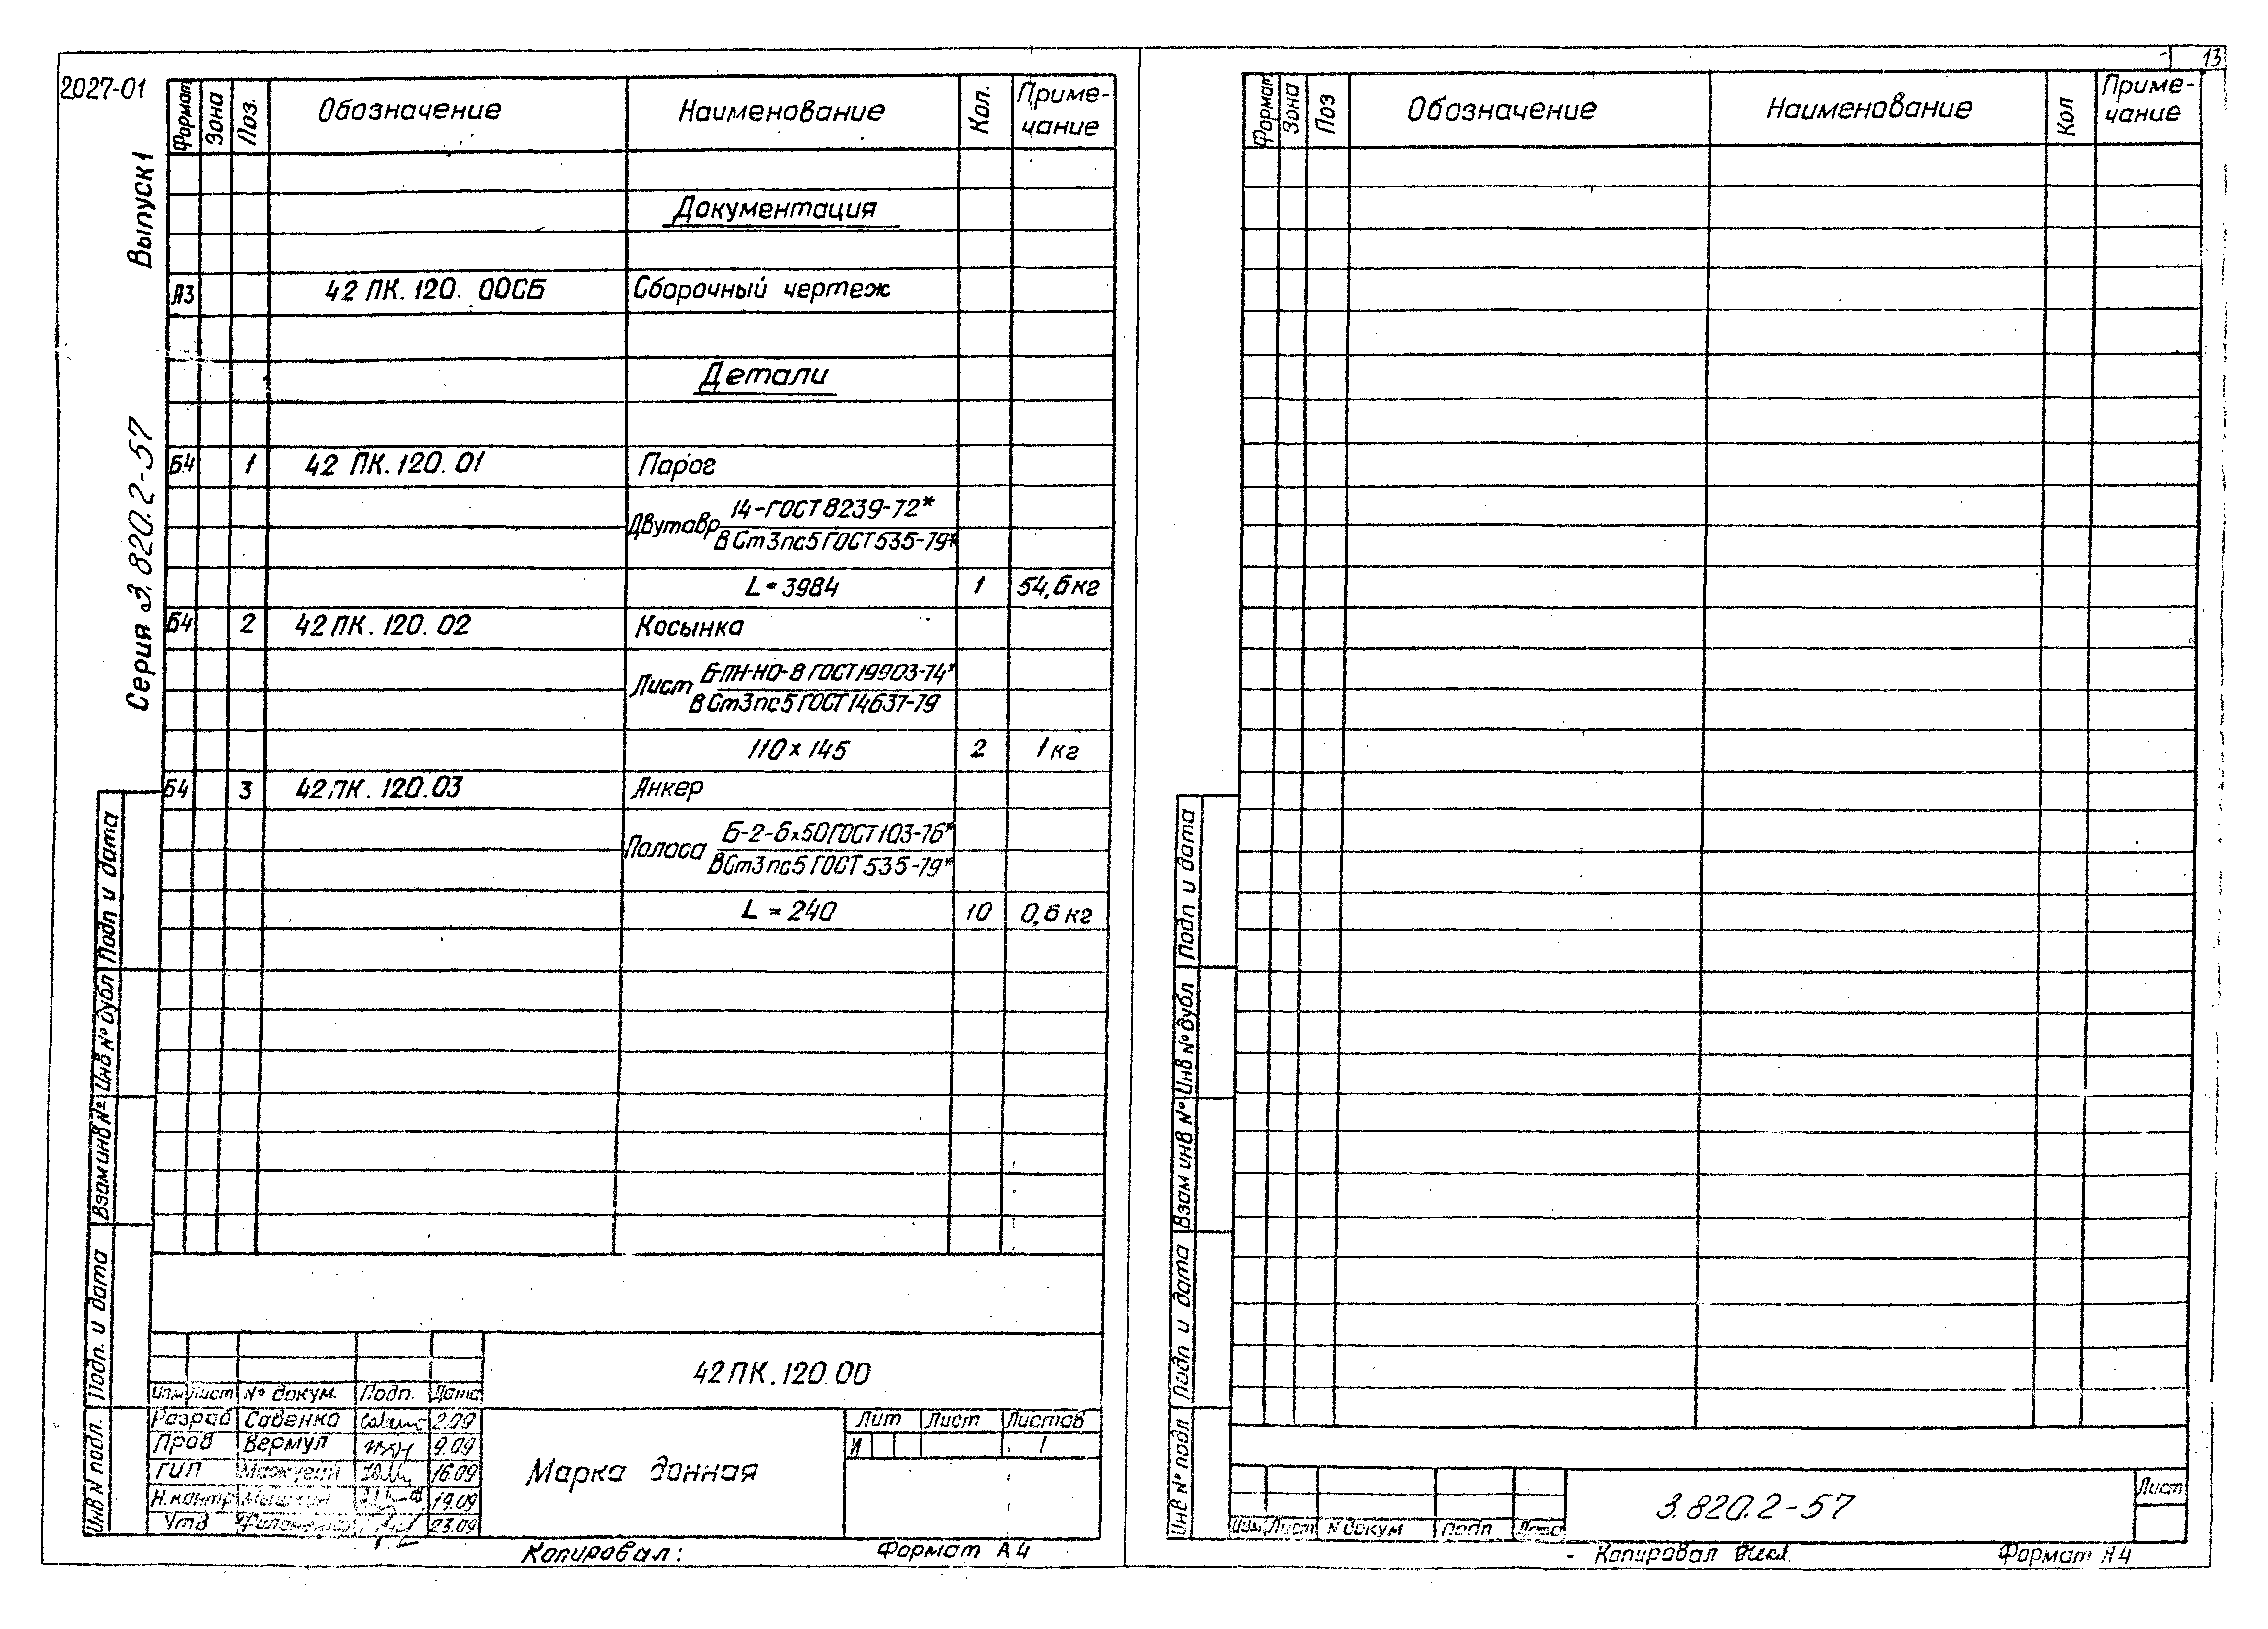 13
2027-01
Выпуск 1
Серия 3.820.2-57
Формат Зона Поз. Обозначение Наименование Кол. Приме-
чание
Документация
А3 42 ПК.120. 00СБ Сборочный чертеж
Детали
Б4 1 42 ПК.120.01 Порог
Двутавр 14-ГОСТ 8239-72*
ВСт3пс5 ГОСТ 535-79*
L=3984 1 54,6кг
Б4 2 42 ПК.120.02 Косынка
Лист Б-ПН-НО-8 ГОСТ 19903-74*
ВСт3пс5 ГОСТ 14637-79
110 х 145 2 1 кг
Б4 3 42 ПК.120.03 Анкер
Полоса Б-2-6х50 ГОСТ 103-76*
ВСт3пс5 ГОСТ 535-79*
L=240 10 0,6 кг
Подп и дата
Инв № дубл
Взам инв №
Подп. и дата
Инв N подл.
42 ПК.120.00
Изм Лист № докум. Подп. Дата
Разраб Савенко 2.09
Пров Вермул 9.09
ГИП 16.09
Н.контр 19.09
Утв 23.09
Марка донная
Лит Лист Листов
И 1
Копировал: Формат А4
Формат Зона Поз Обозначение Наименование Кол Приме-
чание
Подп и дата
Инв № дубл
Взам инв №
Подп и дата
Инв № подл
3.820.2-57
Лист
Изм Лист N докум Подп Дата
Копировал Формат А4